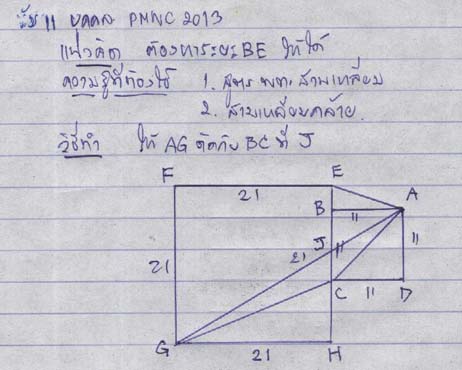 ข้อ 11 บุคคล PMWC 2013
แนวคิด ต้องหาระยะ BE ให้ได้
ความรู้ที่ต้องใช้ 1. สูตร พท. สามเหลี่ยม
2. สามเหลี่ยมคล้าย.
วิธีทำ ให้ AG ตัดกับ BC ที่ J
F E
21
B A
11
J
21 21 11 11
C 11 D
G 21 H